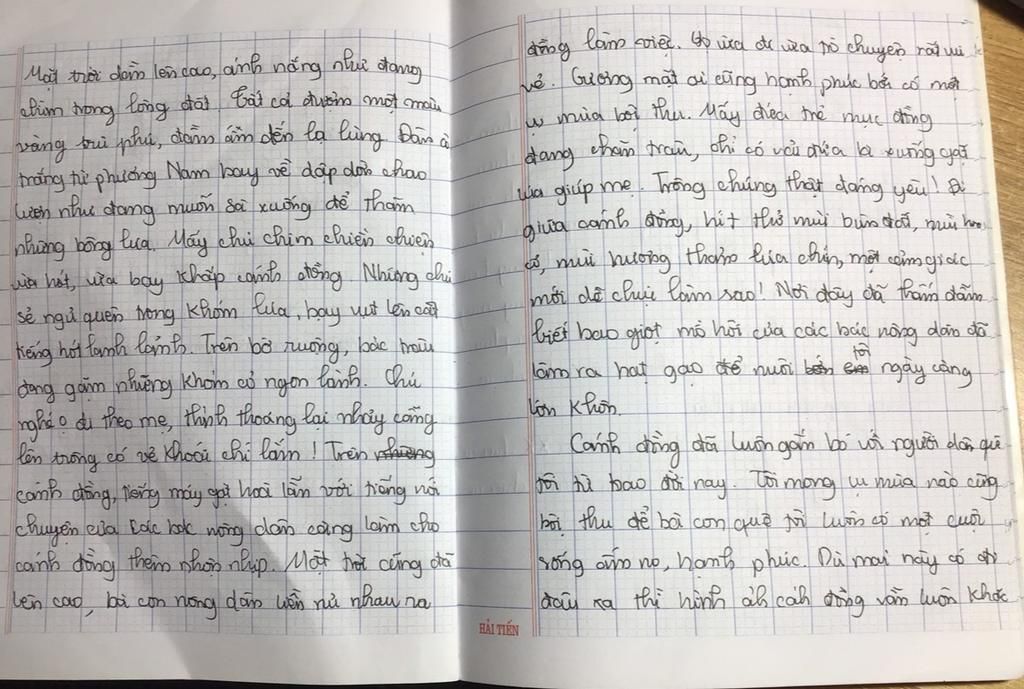 Mặt trời dần lên cao, ánh nắng như đang
chìm trong lòng đất. Tất cả đượm một màu
vàng trù phú, đầm ấm đến lạ lùng. Đàn cò
trắng từ phương Nam bay về dập dờn chao
lượn như đang muốn sà xuống để thăm
những bông lúa. Mấy chú chim chiền chiện
vừa hót, vừa bay khắp cánh đồng. Những chú
sẻ ngủ quên trong khóm lúa, bay vụt lên cất
tiếng hót lanh lảnh. Trên bờ ruộng, bác trâu
đang gặm những khóm cỏ ngon lành. Chú
nghé đi theo mẹ, thỉnh thoảng lại nhảy cẫng
lên trông có vẻ khoái chí lắm! Trên những
cánh đồng, tiếng máy gặt hoà lẫn với tiếng nói
chuyện của các bác nông dân càng làm cho
cánh đồng thêm nhộn nhịp. Mặt trời cũng đã
lên cao, bà con nông dân liền rủ nhau ra
đồng làm việc. Họ vừa đi vừa trò chuyện rất vui
vẻ. Gương mặt ai cũng hạnh phúc bởi có một
vụ mùa bội thu. Mấy đứa trẻ mục đồng
đang chăn trâu, chỉ có vài đứa là xuống gặt
lúa giúp mẹ. Trông chúng thật đáng yêu! Đi
giữa cánh đồng, hít thở mùi bùn đất, mùi hơi
cỏ, mùi hương thơm lúa chín, một cảm giác
mới dễ chịu làm sao! Nơi đây đã thấm đẫm
biết bao giọt mồ hôi của các bác nông dân đã
làm ra hạt gạo để nuôi tôi ngày càng
lớn khôn.
Cánh đồng đã luôn gắn bó với người dân quê
tôi từ bao đời nay. Tôi mong vụ mùa nào cũng
bội thu để bà con quê tôi luôn có một cuộc
sống ấm no, hạnh phúc. Dù mai này có đi
đâu xa thì hình ảnh cánh đồng vẫn luôn khắc
HẢI TIẾN